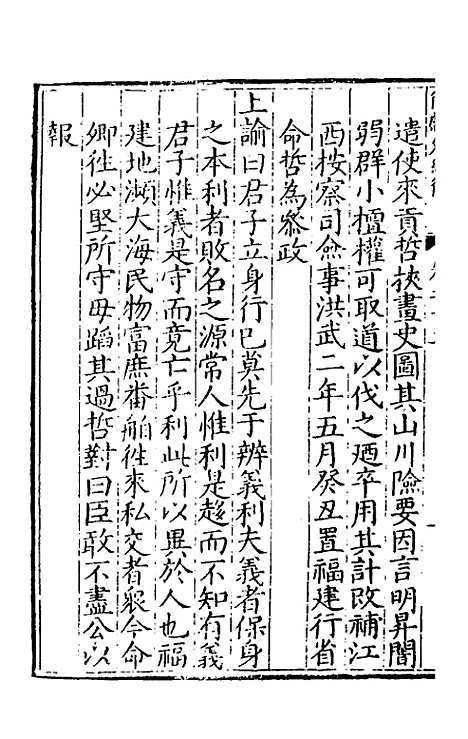 遣使來貢哲挾畫史圖其山川險要因言明昇闇
弱群小擅權可取道以伐之廼卒用其計改補江
西按察司僉事洪武二年五月癸丑置福建行省
命哲為叅政
上諭曰君子立身行巳莫先于辨義利夫義者保身
之本利者敗名之源常人惟利是趍而不知有義
君子惟義是守而竟亡乎利此所以異於人也福
建地瀕大海民物富庶番舶徃來私交者衆今命
卿徃必堅所守毋蹈其過哲對曰臣敢不盡公以
報